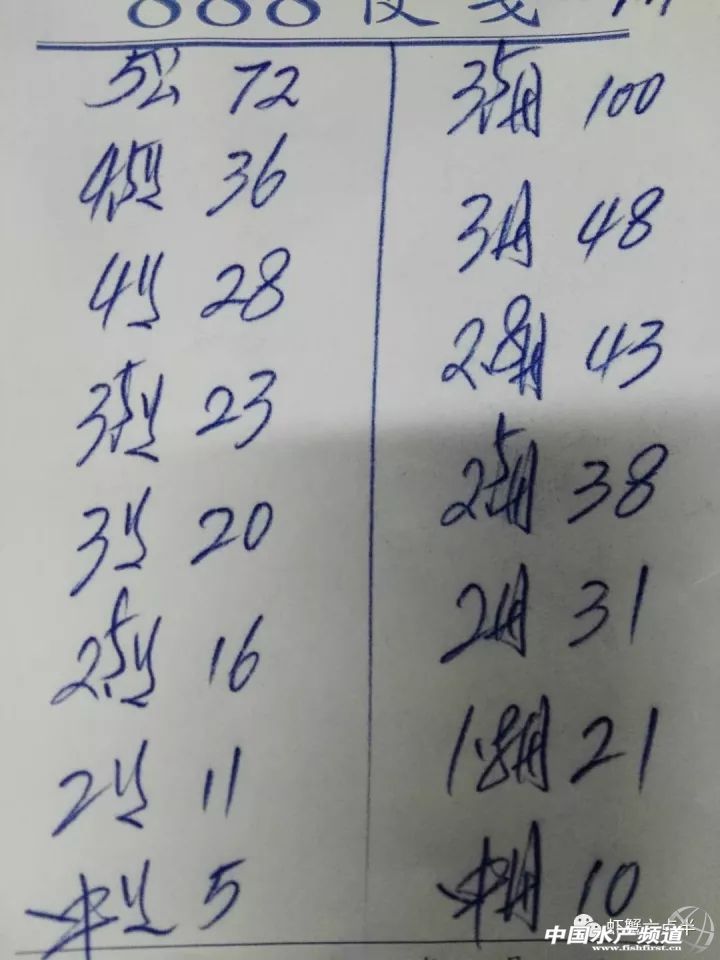 5公 72
4.5公 36
4公 28
3.5公 23
3公 20
2.5公 16
2公 11
中公 5
3.5母 100
3母 48
2.8母 43
2.5母 38
2母 31
1.8母 21
中母 10
虾蟹六点半
中国水产频道
www.fishfirst.cn